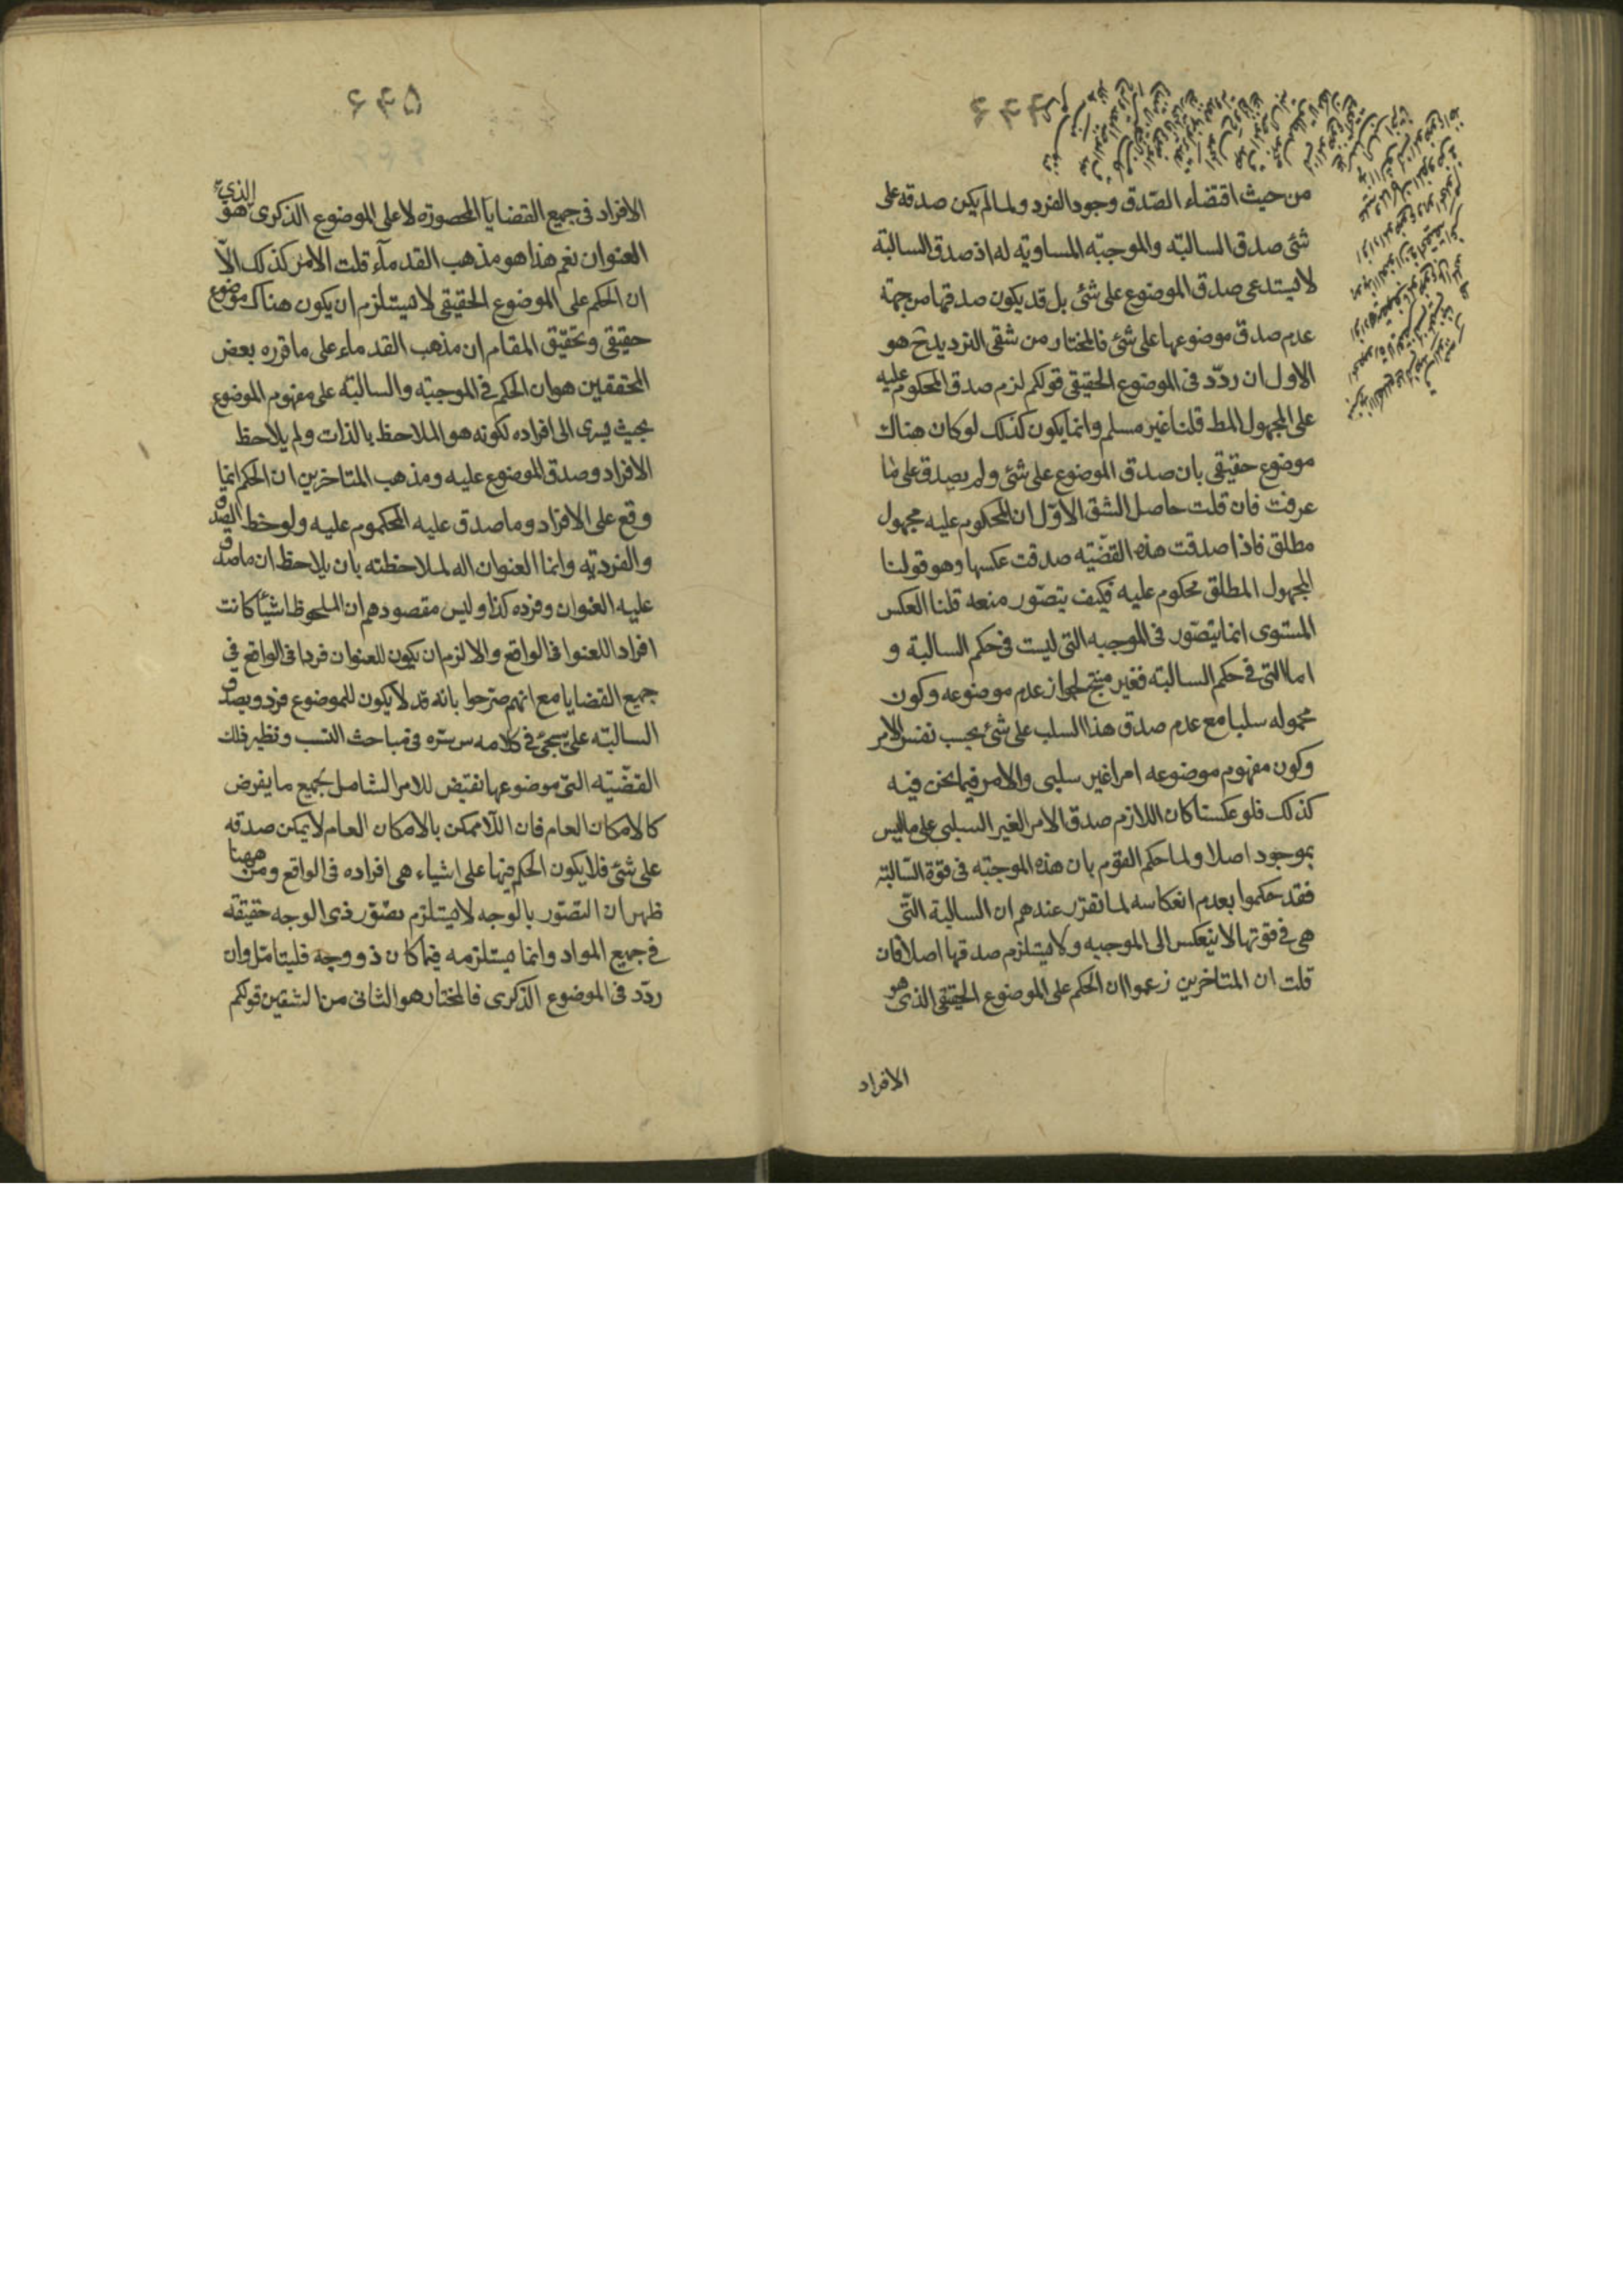 ۶۴۴
من حيث اقتضاء الصّدق وجود الفرد ولما لم يكن صدقه على
شئ صدق السالبة والموجبة المساوية له اذ صدق السالبة
لا يستدعى صدق الموضوع على شئ بل قد يكون صدقها من جهة
عدم صدق موضوعها على شئ فالمختار من شقى الترديد ح هو
الاول ان ردّد فى الموضوع الحقيقى قولكم لزم صدق المحكوم عليه
على المجهول المط قلنا غير مسلم وانما يكون كذلك لو كان هناك
موضوع حقيقى بان صدق الموضوع على شئ ولم يصدق على ما
عرفت فان قلت حاصل الشق الاوّل ان المحكوم عليه مجهول
مطلق فاذا صدقت هذه القضّية صدقت عكسها وهو قولنا
المجهول المطلق محكوم عليه فكيف يتصّور منعه قلنا العكس
المستوى انما يتصّور فى الموجبه التى ليست فى حكم السالبة و
اما التى فى حكم السالبة فغير منتج لجواز عدم موضوعه وكون
محموله سلبا مع عدم صدق هذا السلب على شئ بحسب نفس الامر
وكون مفهوم موضوعه امرا غير سلبى والامر فيما نحن فيه
كذلك فلو عكسنا كان اللازم صدق الامر الغير السلبى على ما ليس
بموجود اصلا ولما حكم القوم بان هذه الموجبة فى قوة السّالبة
فقد حكموا بعدم انعكاسه لما تقرّر عندهم ان السالبة التّى
هى فى قوتها لا ينعكس الى الموجبه ولا يستلزم صدقها اصلا فان
قلت ان المتاخرين زعموا ان الحكم على الموضوع الحقيقى الذى هو
الافراد
۶۴۵
الافراد فى جميع القضايا المحصورة لا على الموضوع الذكرى الذى هو
العنوان نعم هذا هو مذهب القدمآء قلت الامر كذلك الاّ
ان الحكم على الموضوع الحقيقى لا يستلزم ان يكون هناك موضوع
حقيقى وتحقيق المقام ان مذهب القدماء على ما قرره بعض
المحققين هو ان الحكم فى الموجبة والسالبة على مفهوم الموضوع
بحيث يسرى الى افراده لكونه هو الملاحظ بالذات ولم يلاحظ
الافراد وصدق الموضوع عليه ومذهب المتاخرين ان الحكم انما
وقع على الافراد وما صدق عليه المحكموم عليه ولوخظ الصدق
والفردية وانما العنوان اله لملاحظته بان يلاحظ ان ما صدق
عليه العنوان وفرده كذا وليس مقصودهم ان الملحوظ اشيئا كانت
افراد اللعنوا فى الواقع والا لزم ان يكون للعنوان فردا فى الواقع فى
جميع القضايا مع انهم صرّحوا بانه قد لا يكون للموضوع فرد ويصدق
السالبة على سيجئ فى كلامه س سرّه فى مباحث النسب ونظير ذلك
القضّية التى موضوعها نقيض للامر الشامل بجميع ما يفرض
كالامكان العام فان اللّاممكن بالامكان العام لا يمكن صدقه
على شئ فلا يكون الحكم فيها على اشياء هى افراده فى الواقع ومن ههنا
ظهر ان التصّور بالوجه لا يستلزم تصّور ذى الوجه حقيقة
فى جميع المواد وانما يستلزمه فيما كان ذو وجه فليتامّل وان
ردّد فى الموضوع الذكرى فالمختار هو الثانى من الشقين قولكم